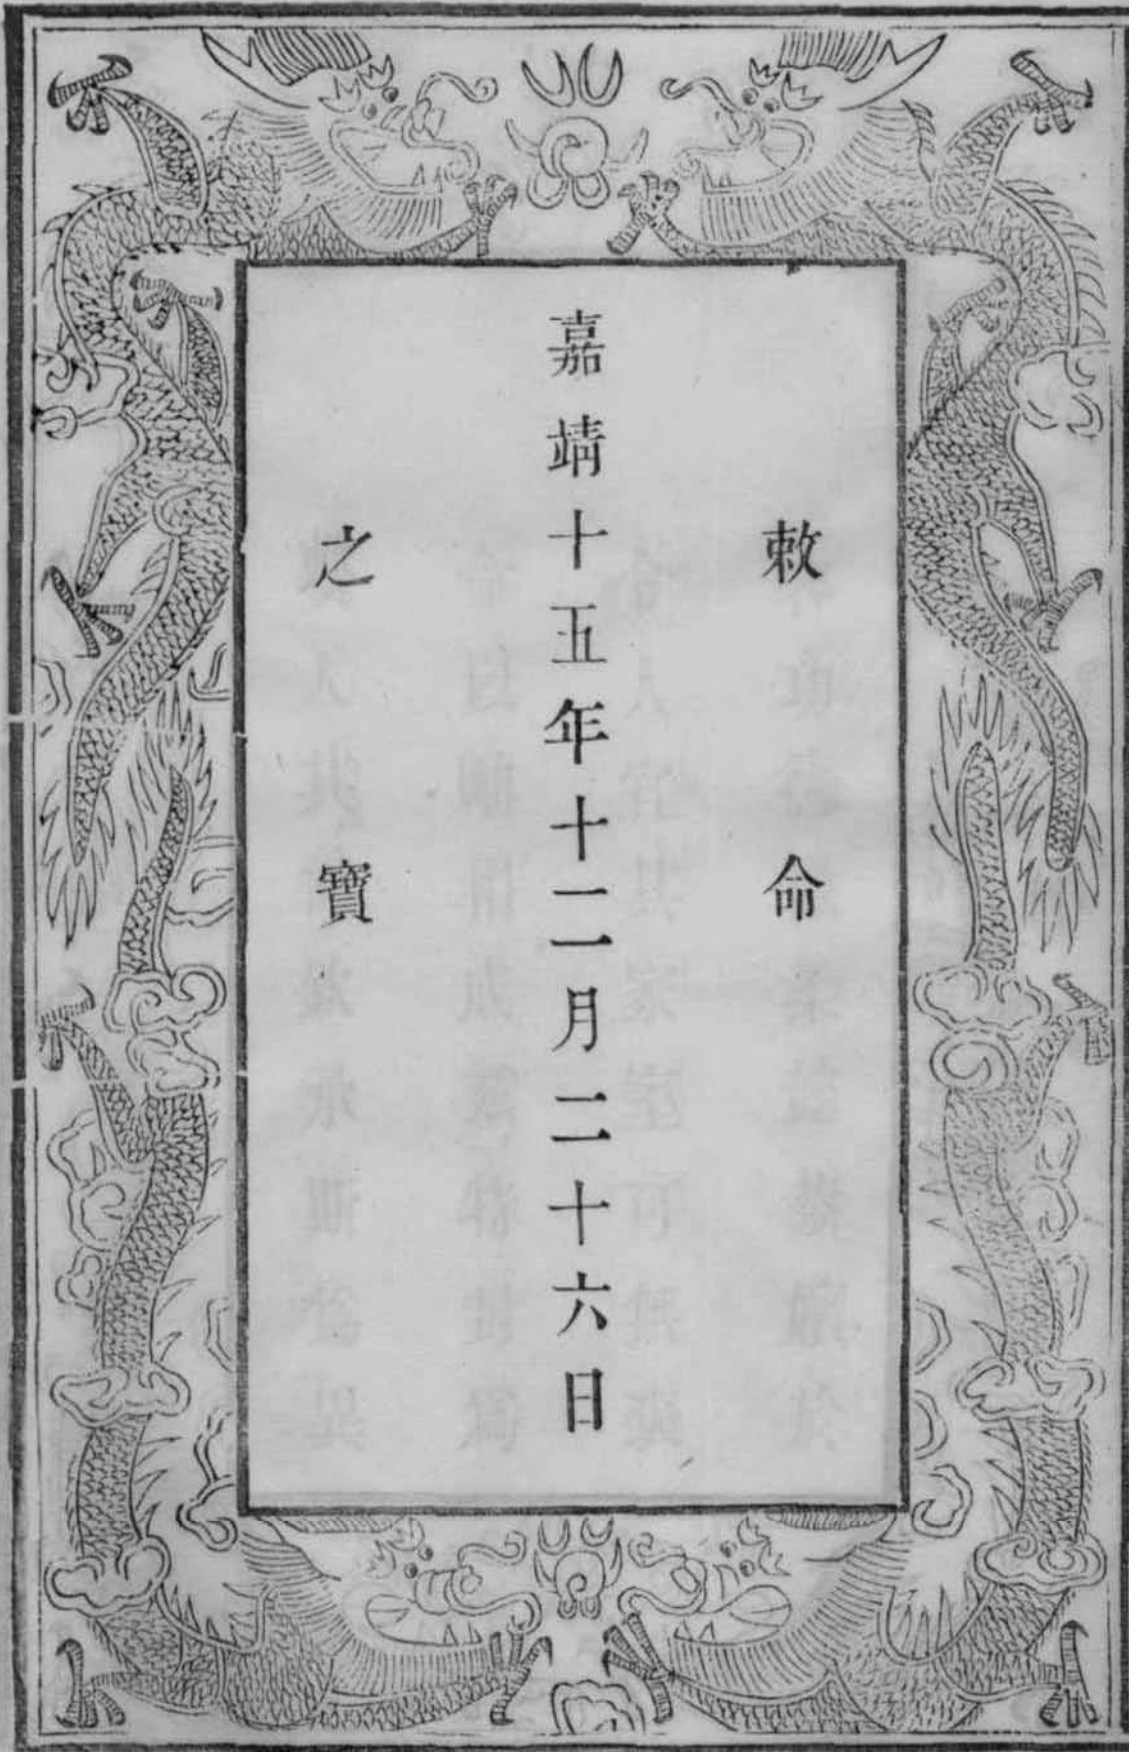 敕命
嘉靖十五年十二月二十六日
之寶